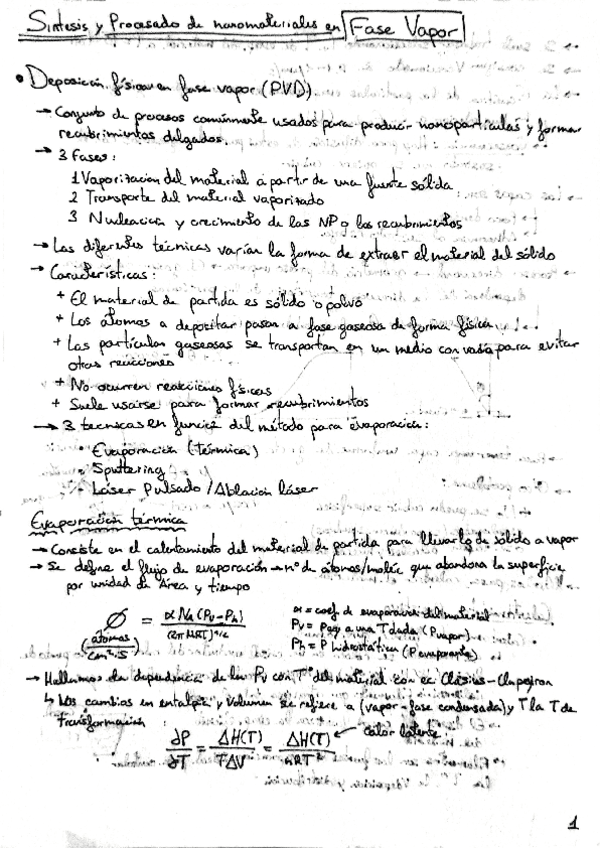 Síntesis y Procesado de nanomateriales en Fase Vapor
• Deposición física en fase vapor (PVD)
→ Conjunto de procesos comúnmente usados para producir nanopartículas y formar
recubrimientos delgados.
→ 3 Fases:
1 Vaporización del material a partir de una fuente sólida
2 Transporte del material vaporizado
3 Nucleación y crecimiento de las NP o los recubrimientos
→ Las diferentes técnicas varían la forma de extraer el material del sólido
→ Características:
+ El material de partida es sólido o polvo
+ Los átomos a depositar pasan a fase gaseosa de forma física
+ Las partículas gaseosas se transportan en un medio con vacío para evitar
otras reacciones
+ No ocurren reacciones físicas
+ Suele usarse para formar recubrimientos
→ 3 técnicas en función del método para evaporación:
• Evaporación (térmica)
• Sputtering
• Láser Pulsado / Ablación láser
Evaporación térmica
→ Consiste en el calentamiento del material de partida para llevarlo de sólido a vapor
→ Se define el flujo de evaporación → nº de átomos/moléc que abandona la superficie
por unidad de Área y tiempo
Ø = α Na (Pv - Ph) / (2π MRT)^1/2
(átomos / cm²·s)
α = coef. de evaporación del material
Pv = P a una T dada (P vapor)
Ph = P hidrostática (P evaporante)
→ Hallamos la dependencia de la Pv con Tª del material con ec Clasius-Clapeyron
↳ Los cambios en entalpía y volumen se refiere a (vapor-fase condensada) y T la T de
transformación
∂P/∂T = ΔH(T)/TΔV = ΔH(T)/RT² ← calor latente
1